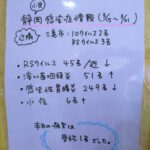 小児
静岡感染症情報 (3/15〜3/21)
近隣 三島市：ロタウイルス 2名
RSウイルス 3名
・RSウイルス 45名/週 ↓
・溶連菌咽頭炎 51名 ↑
・感染性胃腸炎 249名 ↓
・水痘 6名 ↑
本日の病児は
名でした。